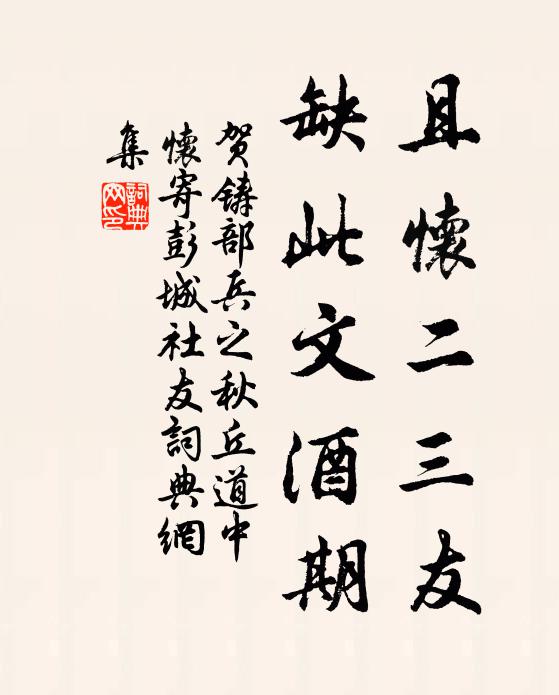 且懷二三友
缺此文酒期
贺鑄部兵之秋丘道中
懷寄彭城社友詞典網
集
詞典網印